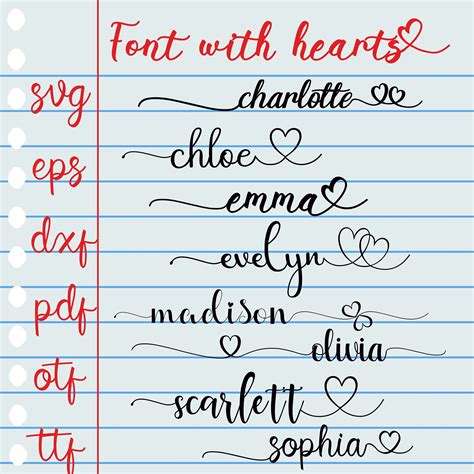 Font with hearts
svg
charlotte
chloe
eps
emma
dxf
evelyn
pdf
madison
olivia
otf
scarlett
ttf
sophia